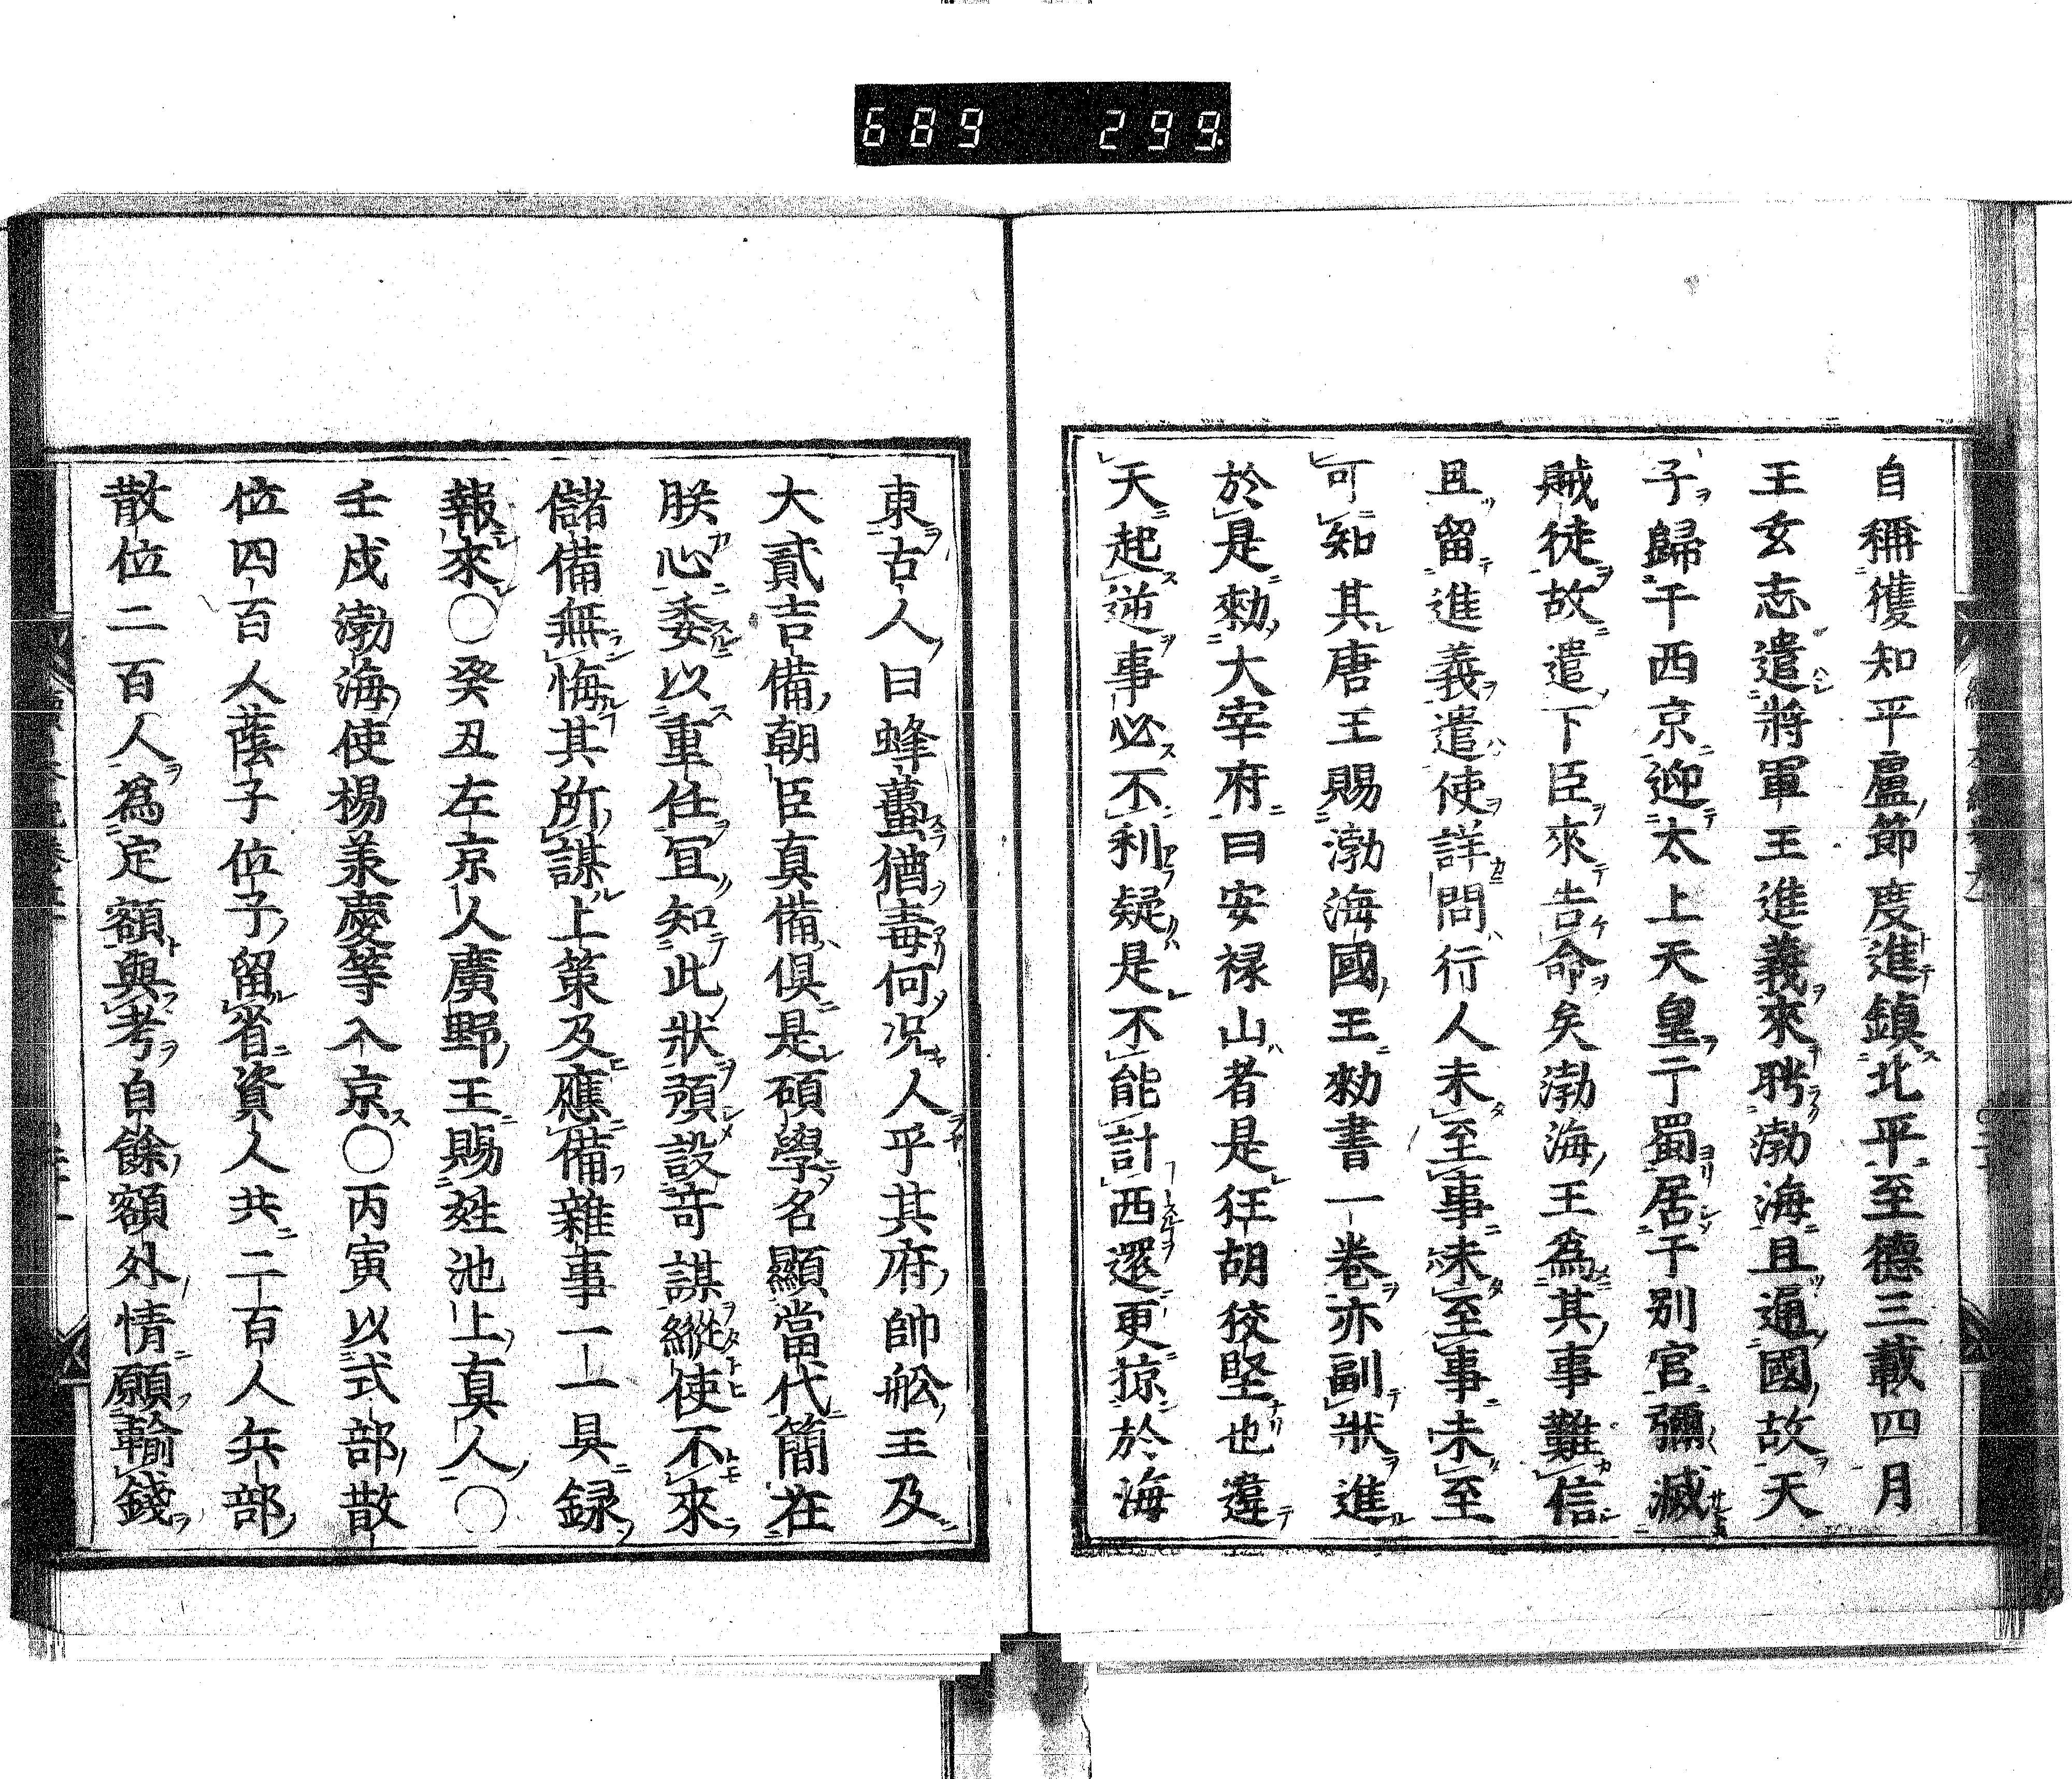 689 299
自稱獲知平盧節度進鎮北平至德三載四月
王玄志遣將軍王進義來聘渤海且通國故天
子歸于西京迎太上天皇于蜀居于別宮彌滅
賊徒故遣下臣來告命矣渤海王為其事難信
且留進義遣使詳問行人未至事未至事未至
可知其唐王賜渤海國王勑書一卷亦副狀進
於是勑大宰府曰安禄山者是狂胡狡堅也違
天起逆事必不利疑是不能計西還更掠於海
東古人曰蜂蠆猶毒何況人乎其府帥舩王及
大貳吉備朝臣真備俱是碩學名顯當代簡在
朕心委以重任冝知此狀預設竒謀縱使不來
儲備無悔其所謀上策及應備雜事一一具録
報來〇癸丑左京人廣野王賜姓池上真人〇
壬戌渤海使揚羕慶等入京〇丙寅以式部散
位四百人蔭子位子留省資人共二百人兵部
散位二百人為定額與考自餘額外情願輸錢